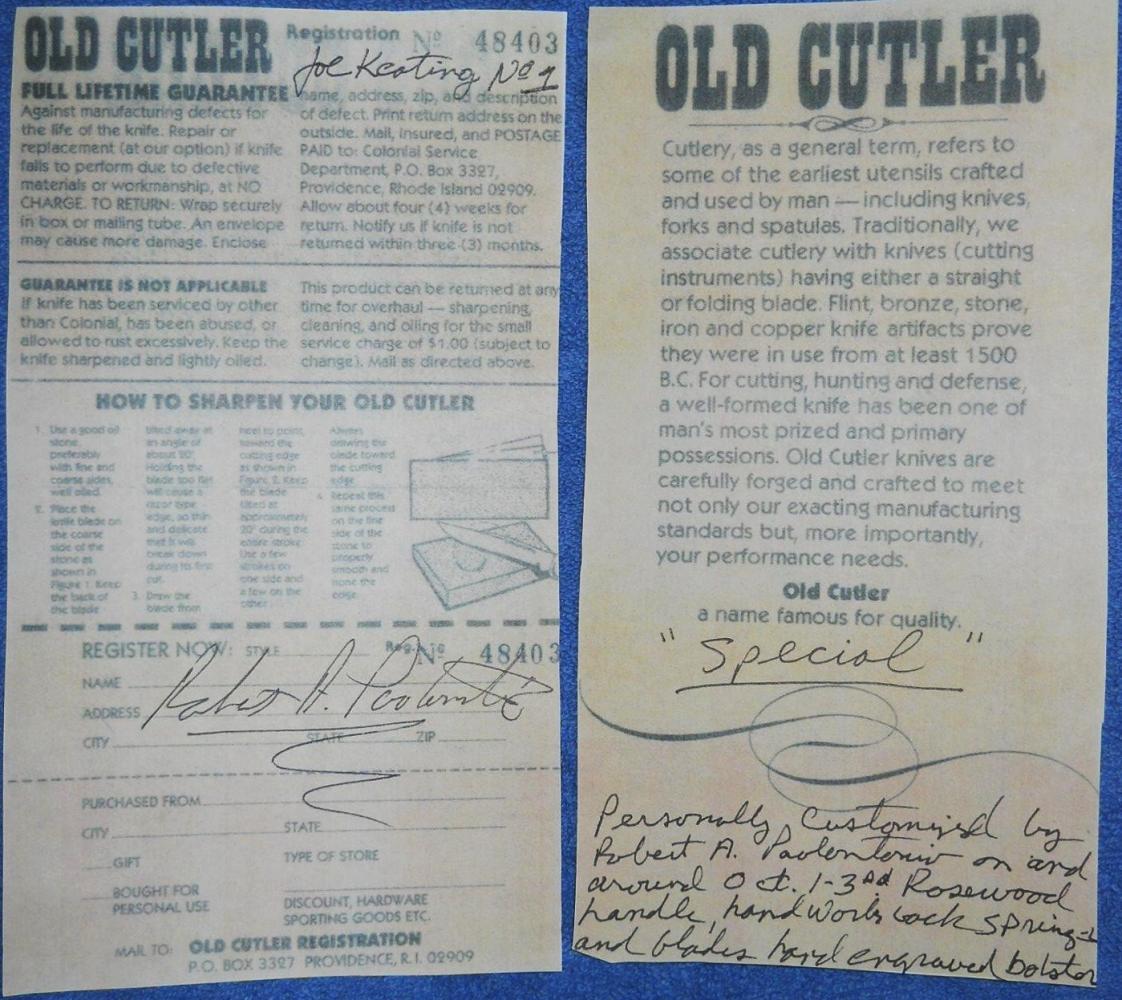 OLD CUTLER
Registration No 48403
Joe Keating No 1
FULL LIFETIME GUARANTEE
Against manufacturing defects for
the life of the knife. Repair or
replacement (at our option) if knife
fails to perform due to defective
materials or workmanship, at NO
CHARGE. TO RETURN: Wrap securely
in box or mailing tube. An envelope
may cause more damage. Enclose
name, address, zip, and description
of defect. Print return address on the
outside. Mail, insured, and POSTAGE
PAID to: Colonial Service
Department, P.O. Box 3327,
Providence, Rhode Island 02909.
Allow about four (4) weeks for
return. Notify us if knife is not
returned within three (3) months.
GUARANTEE IS NOT APPLICABLE
If knife has been serviced by other
than Colonial, has been abused, or
allowed to rust excessively. Keep the
knife sharpened and lightly oiled.
This product can be returned at any
time for overhaul — sharpening,
cleaning, and oiling for the small
service charge of $1.00 (subject to
change). Mail as directed above.
HOW TO SHARPEN YOUR OLD CUTLER
1. Use a good oil
stone,
preferably
with fine and
coarse sides,
well oiled.
2. Place the
knife blade on
the coarse
side of the
stone as
shown in
Figure 1. Keep
the back of
the blade
tilted away at
an angle of
about 20°.
Holding the
blade too flat
will cause a
razor type
edge, so thin
and delicate
that it will
break down
during its first
cut.
3. Draw the
blade from
heel to point,
toward the
cutting edge
as shown in
Figure 2. Keep
the blade
tilted at
approximately
20° during the
entire stroke.
Use a few
strokes on
one side and
a few on the
other.
Always
drawing the
blade toward
the cutting
edge.
4. Repeat this
same process
on the fine
side of the
stone to
properly
smooth and
hone the
edge.
REGISTER NOW: STYLE Reg. No 48403
NAME
ADDRESS
Robert A. Paolantonio
CITY STATE ZIP
PURCHASED FROM
CITY STATE
GIFT TYPE OF STORE
BOUGHT FOR
PERSONAL USE
DISCOUNT, HARDWARE
SPORTING GOODS ETC.
MAIL TO: OLD CUTLER REGISTRATION
P.O. BOX 3327 PROVIDENCE, R.I. 02909
OLD CUTLER
Cutlery, as a general term, refers to
some of the earliest utensils crafted
and used by man — including knives,
forks and spatulas. Traditionally, we
associate cutlery with knives (cutting
instruments) having either a straight
or folding blade. Flint, bronze, stone,
iron and copper knife artifacts prove
they were in use from at least 1500
B.C. For cutting, hunting and defense,
a well-formed knife has been one of
man's most prized and primary
possessions. Old Cutler knives are
carefully forged and crafted to meet
not only our exacting manufacturing
standards but, more importantly,
your performance needs.
Old Cutler
a name famous for quality.
"Special"
Personally Customized by
Robert A. Paolantonio on and
around Oct. 1-3rd Rosewood
handle, hand works back springs
and blades hand engraved bolster